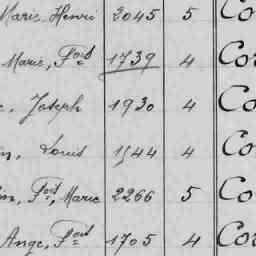 Marie, Henri 2045 5 Co
Marie, Fois 1739 4 Co
Joseph 1930 4 Co
Louis 1544 4 Co
Fois, Marie 2266 5 Co
Ange, Fois 1705 4 Co